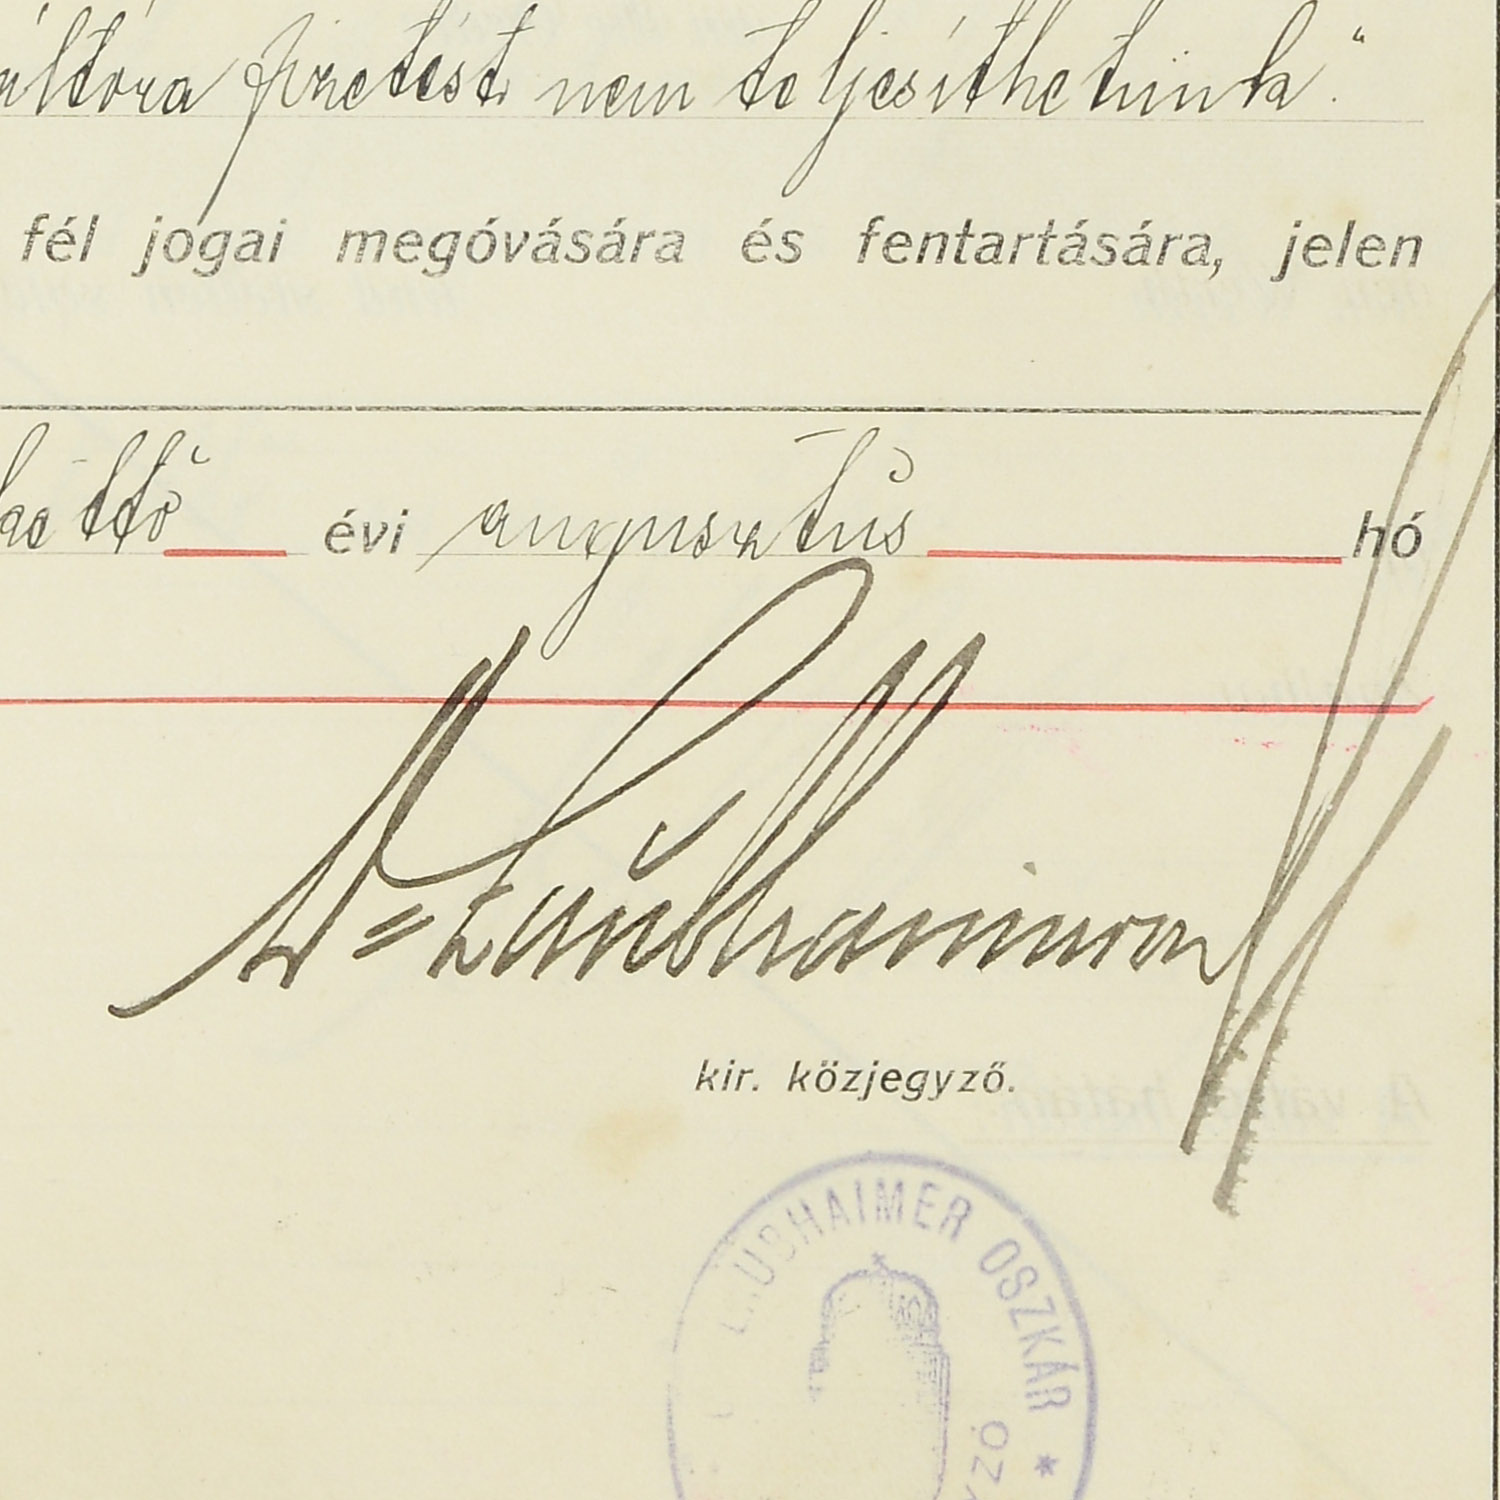 váltóra fizetést nem teljesíthetünk."
fél jogai megóvására és fentartására, jelen
kettő évi augusztus hó
Dr Laubhaimer
kir. közjegyző.
LAUBHAIMER OSZKÁR *